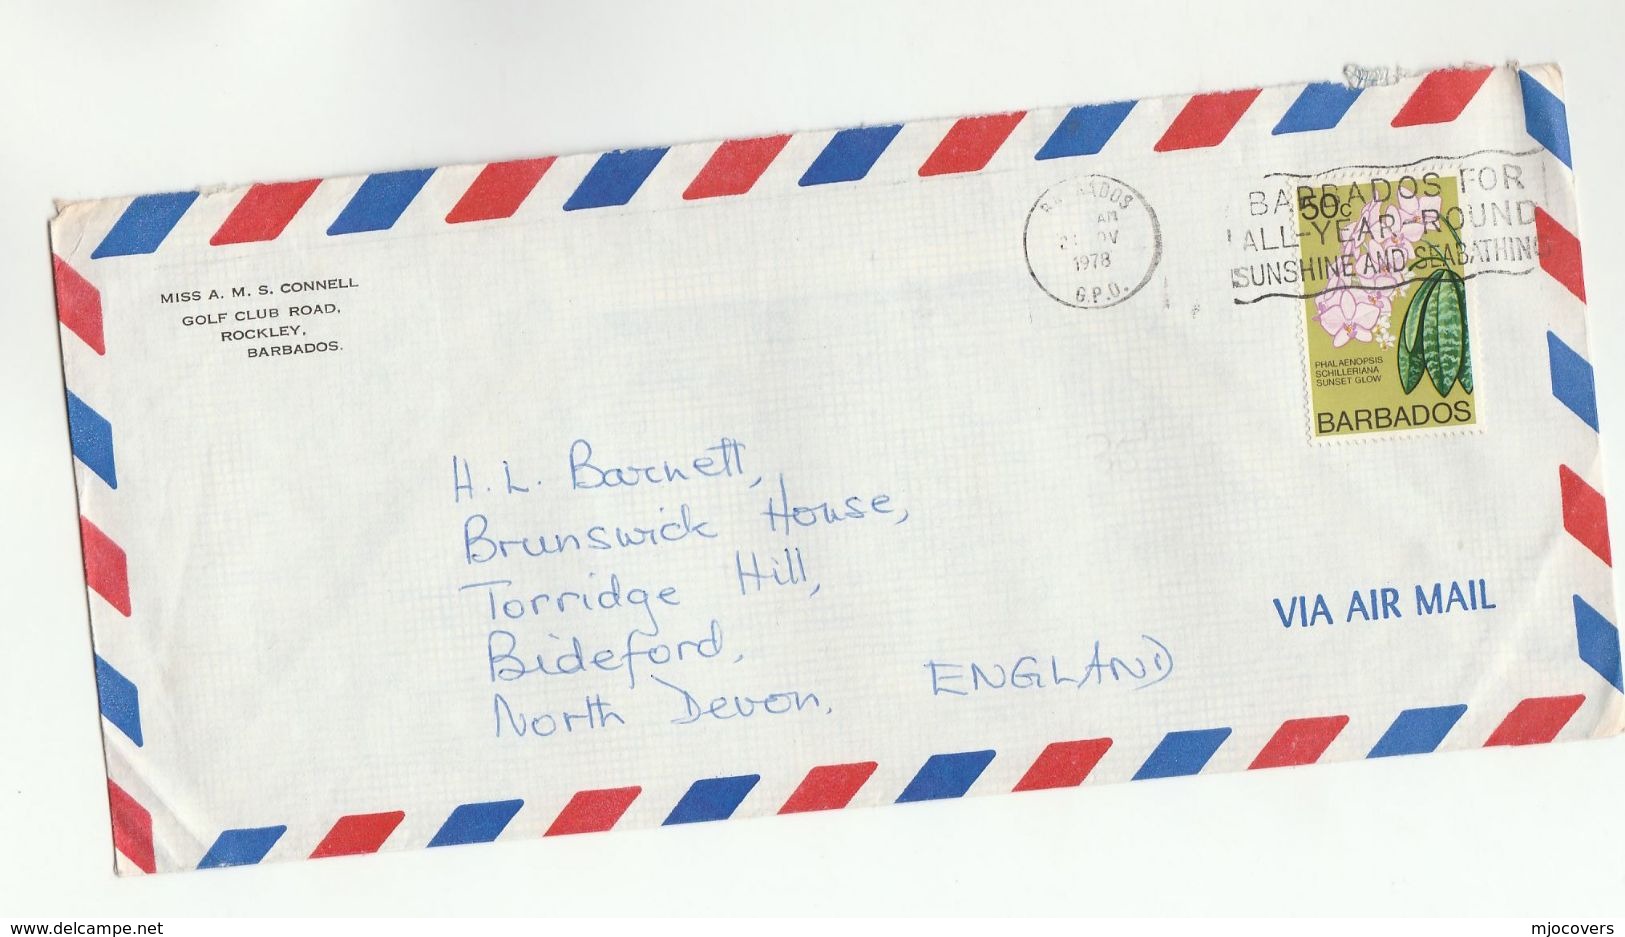 MISS A. M. S. CONNELL
GOLF CLUB ROAD,
ROCKLEY,
BARBADOS.
BARBADOS
AM
1978
G.P.O.
BARBADOS FOR
ALL-YEAR-ROUND
SUNSHINE AND SEABATHING
50c
PHALAENOPSIS
SCHILLERIANA
SUNSET GLOW
BARBADOS
H. L. Barnett,
Brunswick House,
Torridge Hill,
Bideford,
North Devon, ENGLAND
VIA AIR MAIL
www.delcampe.net
mjocovers